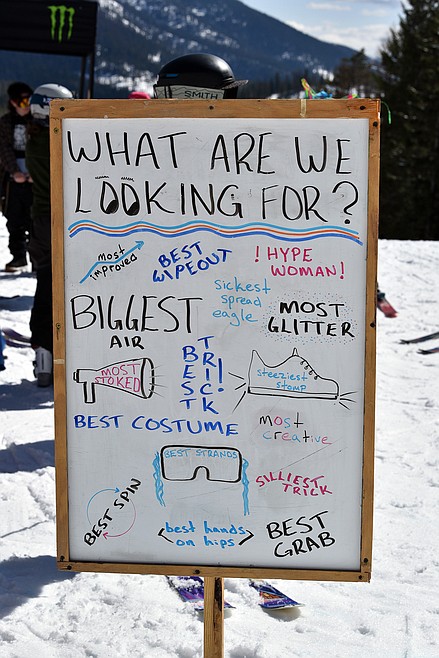 SMITH
WHAT ARE WE
LOOKING FOR?
Most
improved
BEST
WIPEOUT
! HYPE
WOMAN!
sickest
spread
eagle
BIGGEST
AIR
MOST
GLITTER
MOST
STOKED
BEST
TRICK!
steeziest
stomp
BEST COSTUME
most
creative
BEST STRANDS
SILLIEST
TRICK
BEST SPIN
best hands
on hips
BEST
GRAB